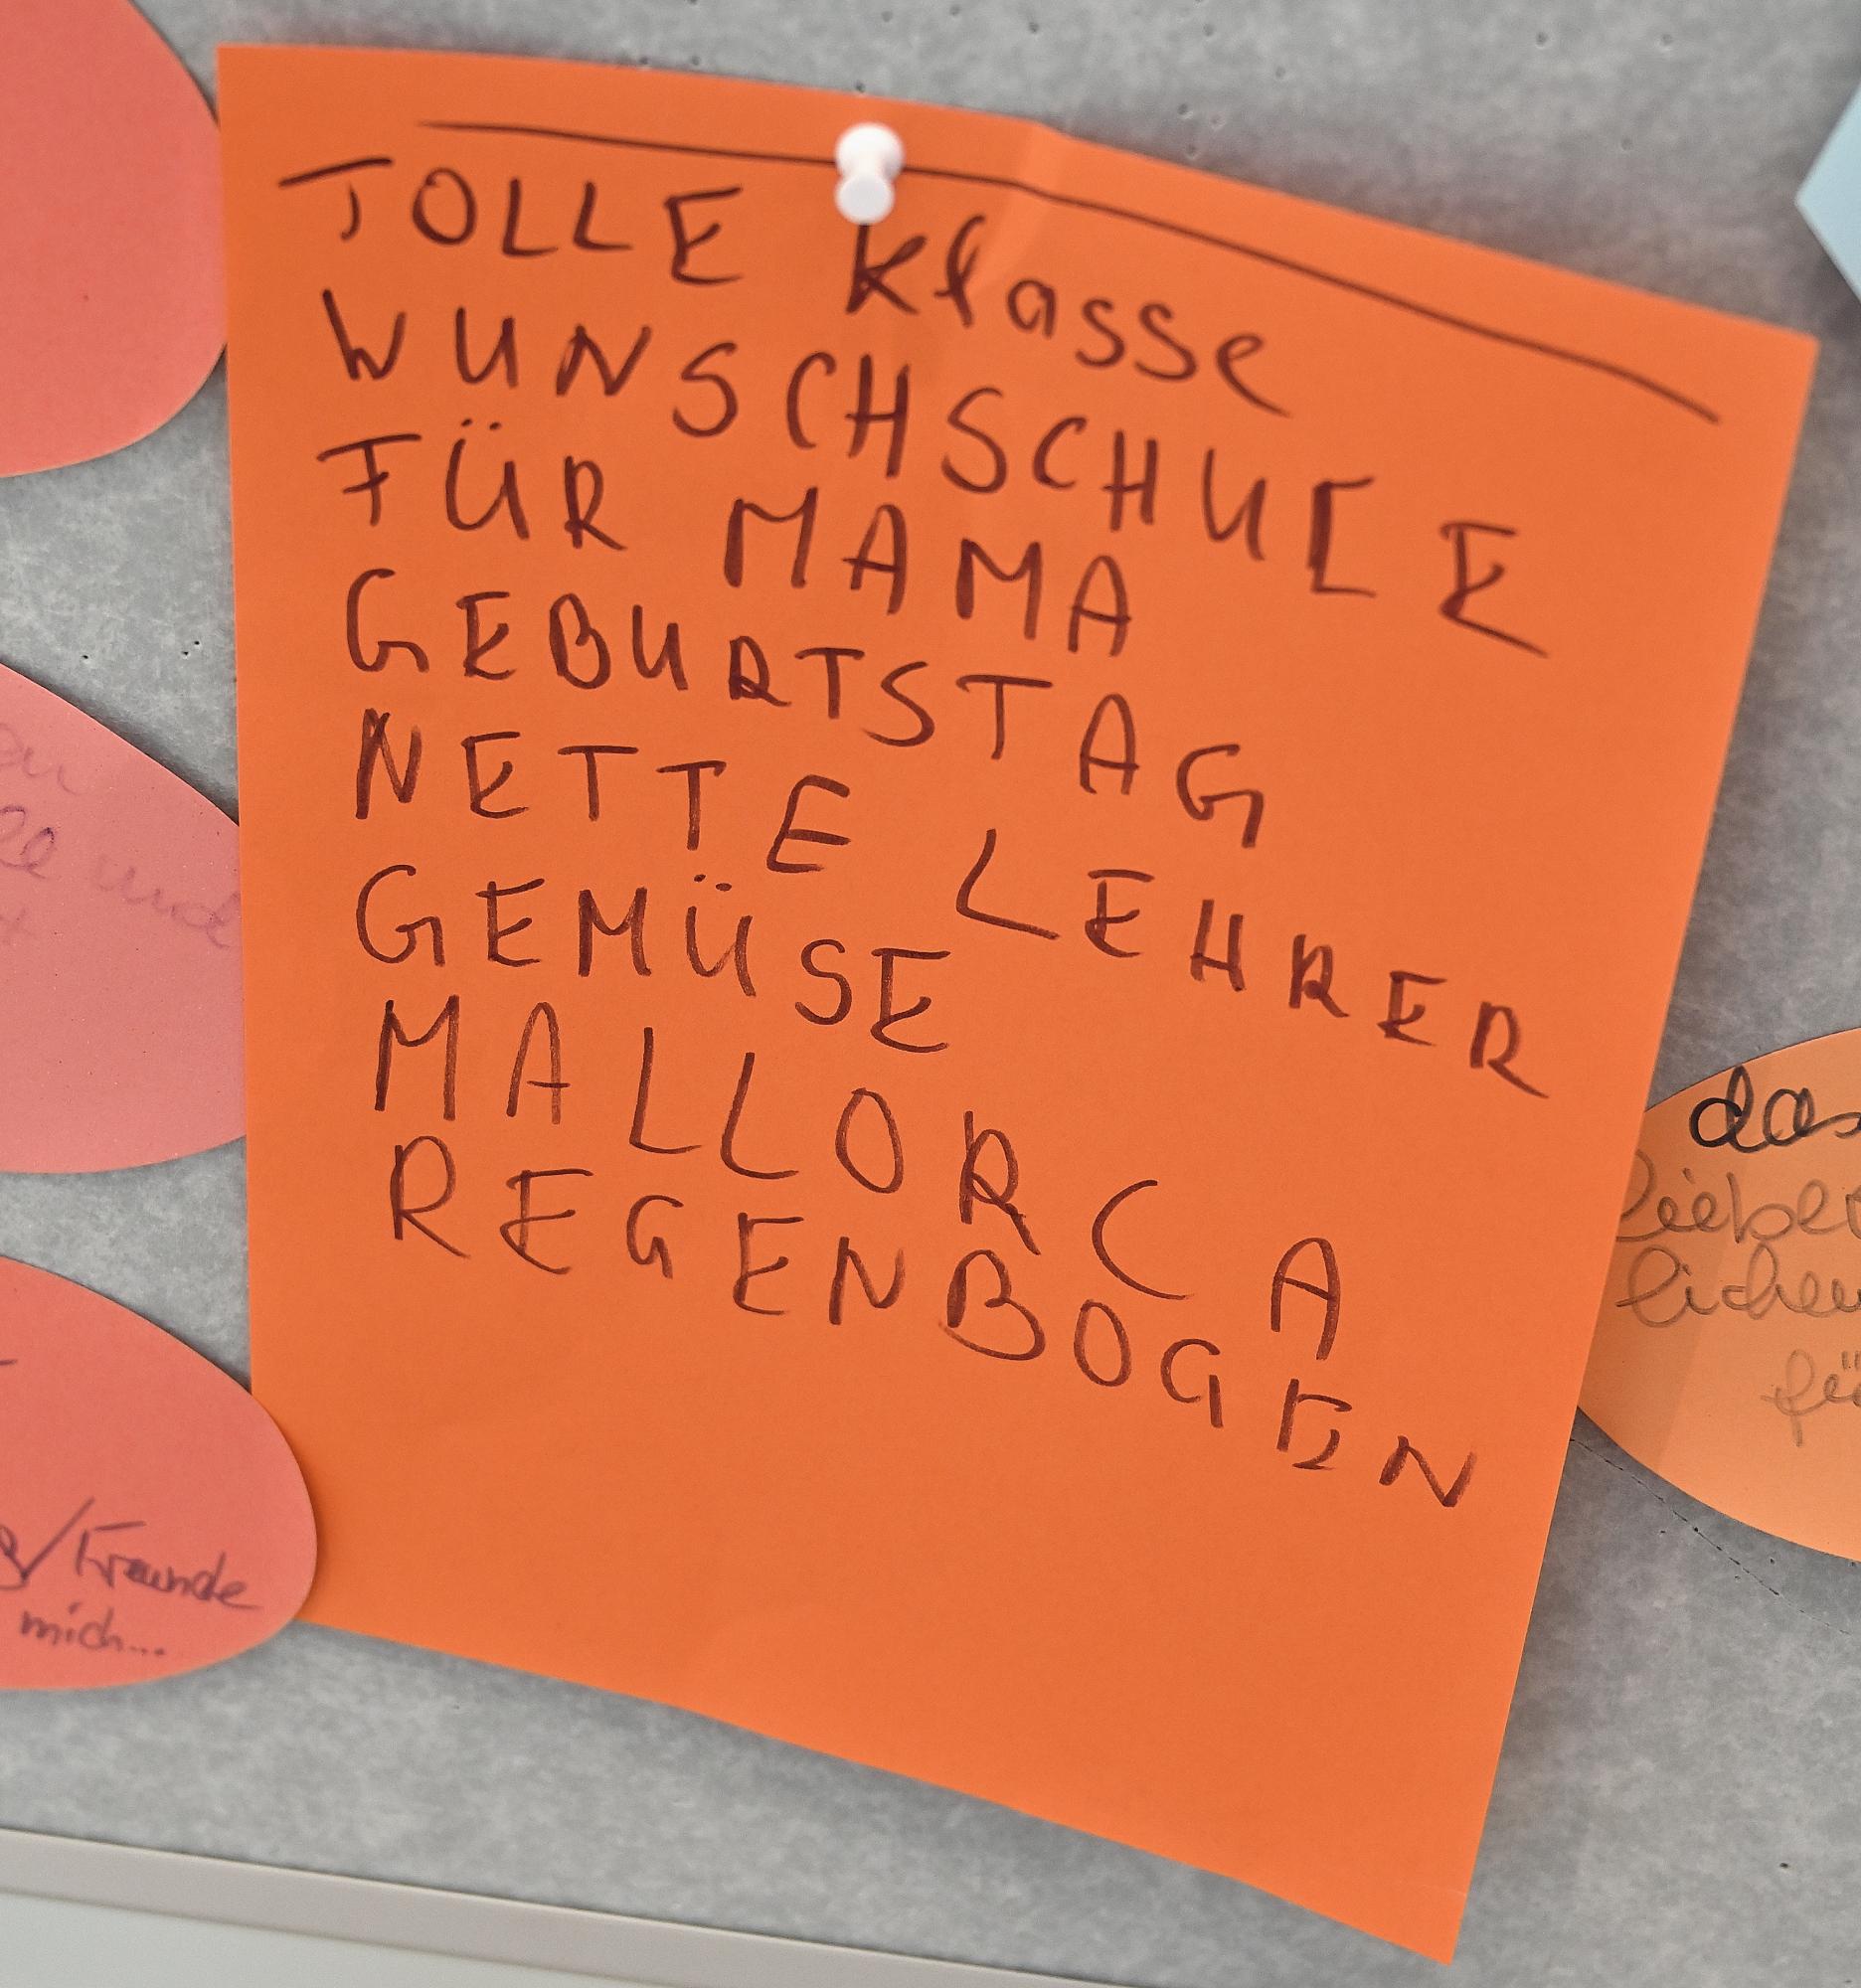 TOLLE klasse
WUNSCHSCHULE
FÜR MAMA
GEBURTSTAG
NETTE LEHRER
GEMÜSE
MALLORCA
REGENBOGEN
und
/Freunde
mich...
das